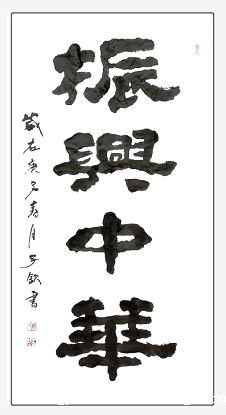 振興中華
歲在庚子春月子欽書